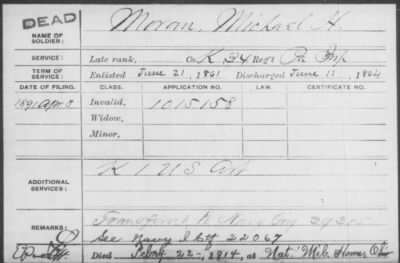 DEAD
NAME OF SOLDIER: Moran, Michael H.
SERVICE: Late rank, Co. K 34 Reg't Pa Inf
TERM OF SERVICE: Enlisted June 21, 1861 Discharged June 11, 1864
DATE OF FILING. CLASS. APPLICATION NO. LAW. CERTIFICATE NO.
1891 Apr. 8 Invalid, 1015158
Widow,
Minor,
ADDITIONAL SERVICES: K 1 U S Art
Transferred to Navy 29215
REMARKS: See Navy 22067
Died 22, 1914, at Nat. Mil. Home, Ohio